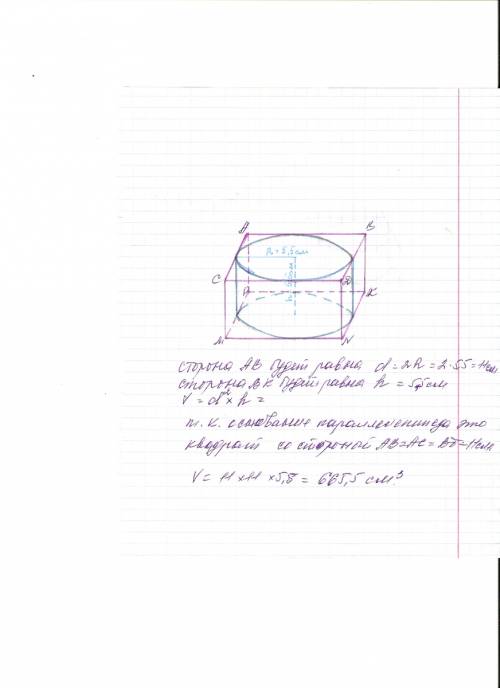 А В
R = 5,5см
С D
P K
M N
сторона АВ будет равна d = 2R = 2·55 = 11см
сторона ВК будет равна h = 5,5см
V = d² × h =
т.к. основание параллепипеда это
квадрат со стороной АВ=АС=ВD=11см
V = 11 × 11 × 5,8 = 665,5 см³